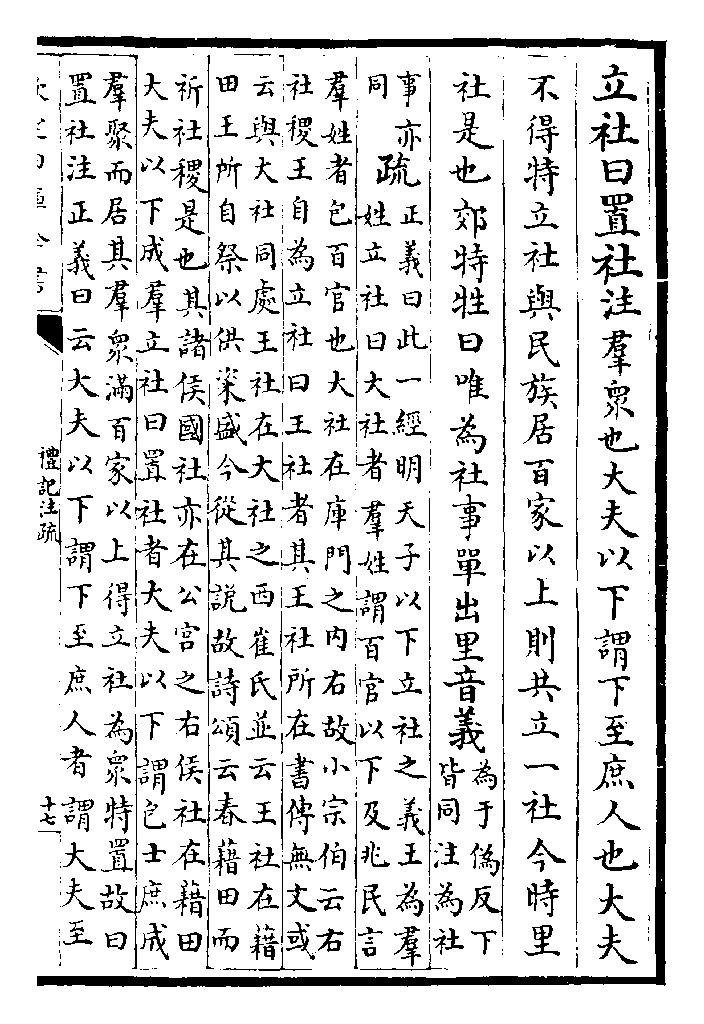 立社曰置社注羣衆也大夫以下謂下至庶人也大夫
不得特立社與民族居百家以上則共立一社今時里
社是也郊特牲曰唯為社事單出里音義為于偽反下
皆同注為社
事亦
同
疏正義曰此一經明天子以下立社之義王為羣
姓立社曰大社者羣姓謂百官以下及兆民言
羣姓者包百官也大社在庫門之内右故小宗伯云右
社稷王自為立社曰王社者其王社所在書傳無文或
云與大社同處王社在大社之西崔氏並云王社在藉
田王所自祭以供粢盛今從其説故詩頌云春藉田而
祈社稷是也其諸侯國社亦在公宫之右侯社在藉田
大夫以下成羣立社曰置社者大夫以下謂包士庶成
羣聚而居其羣衆滿百家以上得立社為衆特置故曰
置社注正義曰云大夫以下謂下至庶人者謂大夫至
禮記注疏
十七